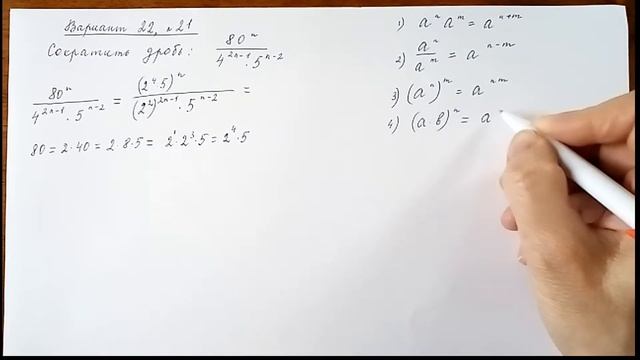 Вариант 22, №21
Сократить дробь: 80ⁿ / (4²ⁿ⁻¹ · 5ⁿ⁻²)
80ⁿ / (4²ⁿ⁻¹ · 5ⁿ⁻²) = (2⁴·5)ⁿ / ((2²)²ⁿ⁻¹ · 5ⁿ⁻²) =
80 = 2·40 = 2·8·5 = 2¹·2³·5 = 2⁴·5
1) aⁿ aᵐ = aⁿ⁺ᵐ
2) aⁿ / aᵐ = aⁿ⁻ᵐ
3) (aⁿ)ᵐ = aⁿᵐ
4) (a·b)ⁿ = a